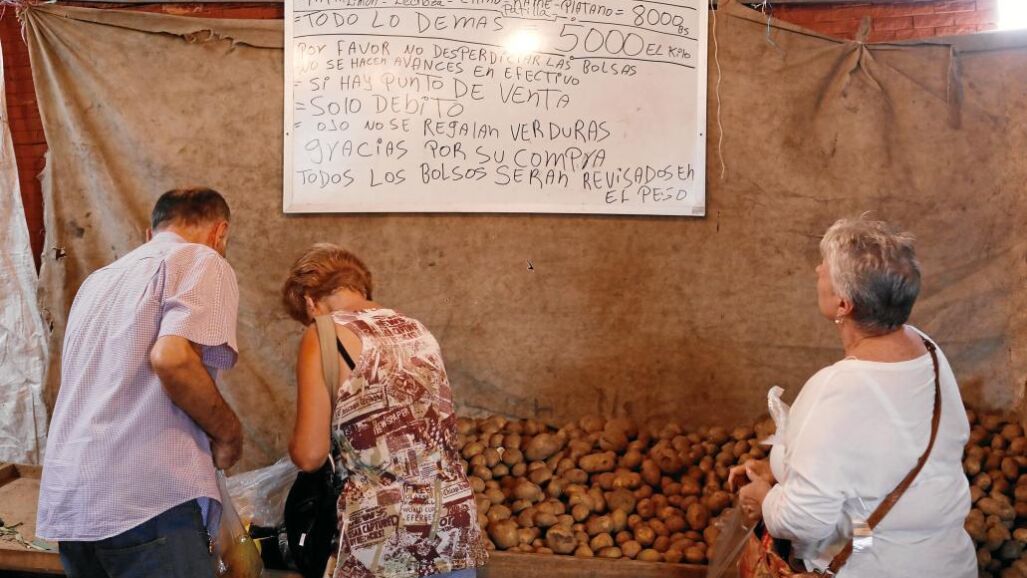 Limón - Lechosa - PLATANO = 8000 Bs
=TODO LO DEMAS 5000 EL Kilo
POR FAVOR NO DESPERDICIAR LAS BOLSAS
NO SE HACEN AVANCES EN EFECTIVO
= SI HAY PUNTO DE VENTA
= SOLO DEBITO
= OJO NO SE REGALAN VERDURAS
GRACIAS POR SU COMPRA
TODOS LOS BOLSOS SERAN REVISADOS EN
EL PESO
WORLD CUP